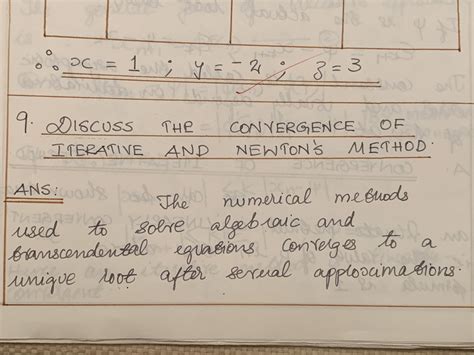 ∴ x = 1 ; y = -2 ; z = 3
9. DISCUSS THE CONVERGENCE OF
ITERATIVE AND NEWTON'S METHOD.
ANS: The numerical methods
used to solve algebraic and
transcendental equations converges to a
unique root after several approximations.